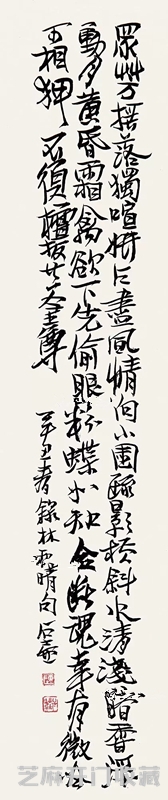 众芳摇落獨喧妍占盡風情向小園疏影橫斜水清淺暗香浮
動月黃昏霜禽欲下先偷眼粉蝶如知合斷魂幸有微吟
可相狎不須檀板共金尊
辛丑春錄林和靖句
芝麻开门收藏